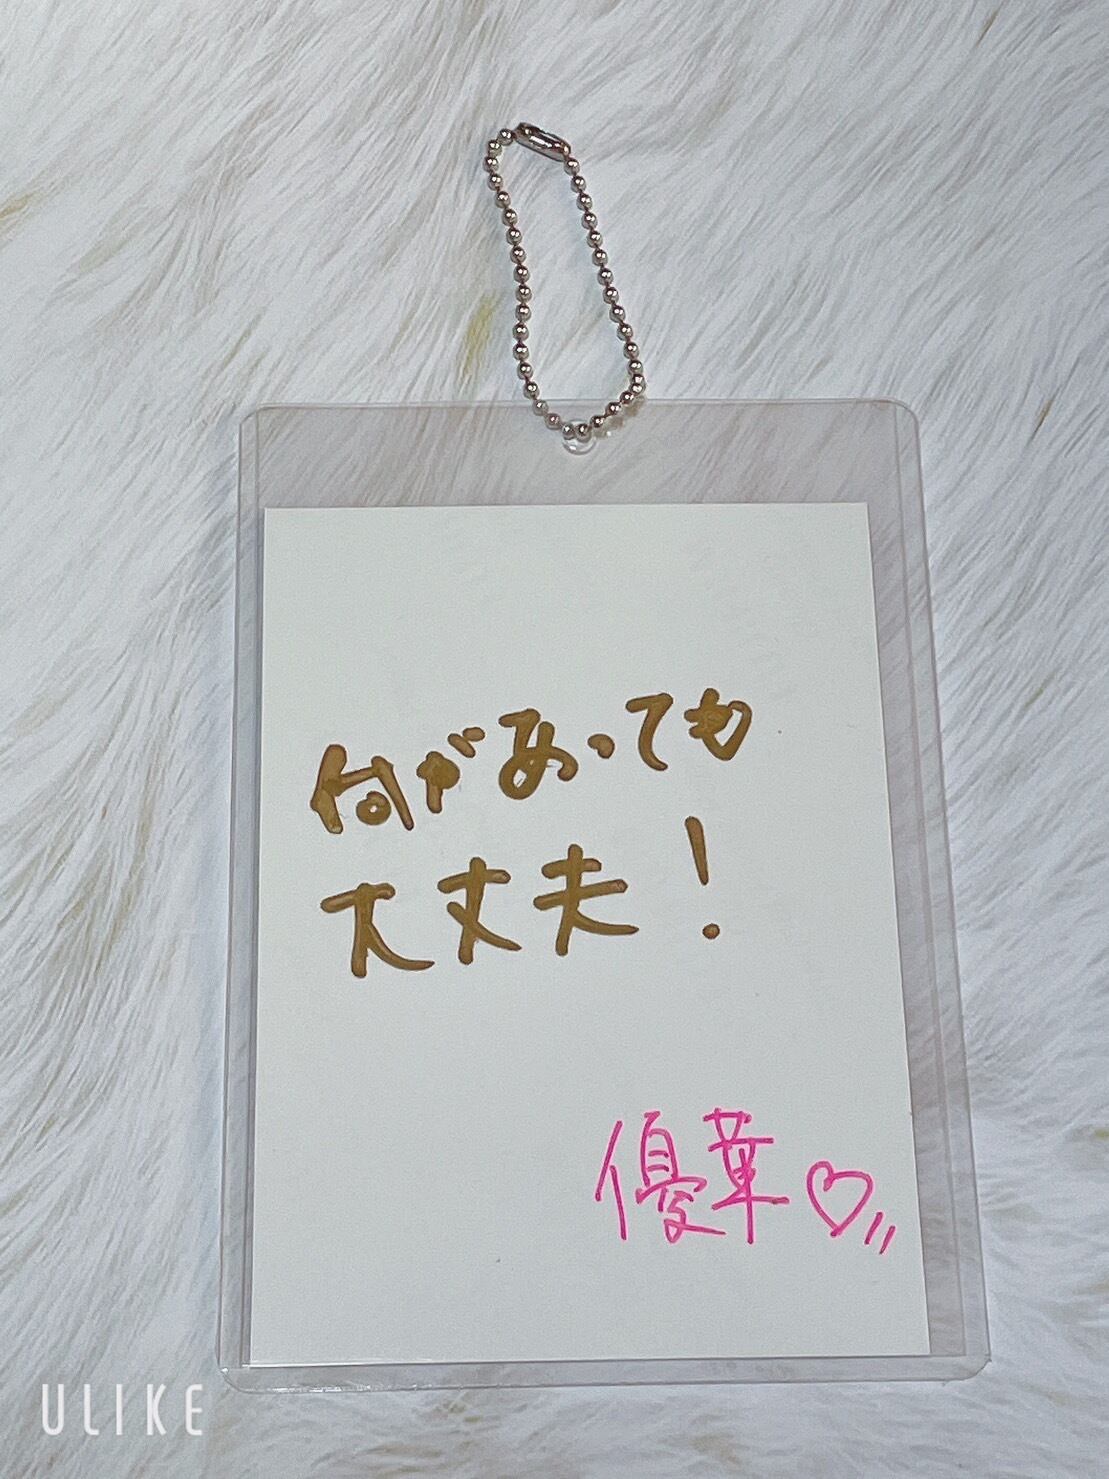 何があっても
大丈夫!
優華♡
ULIKE